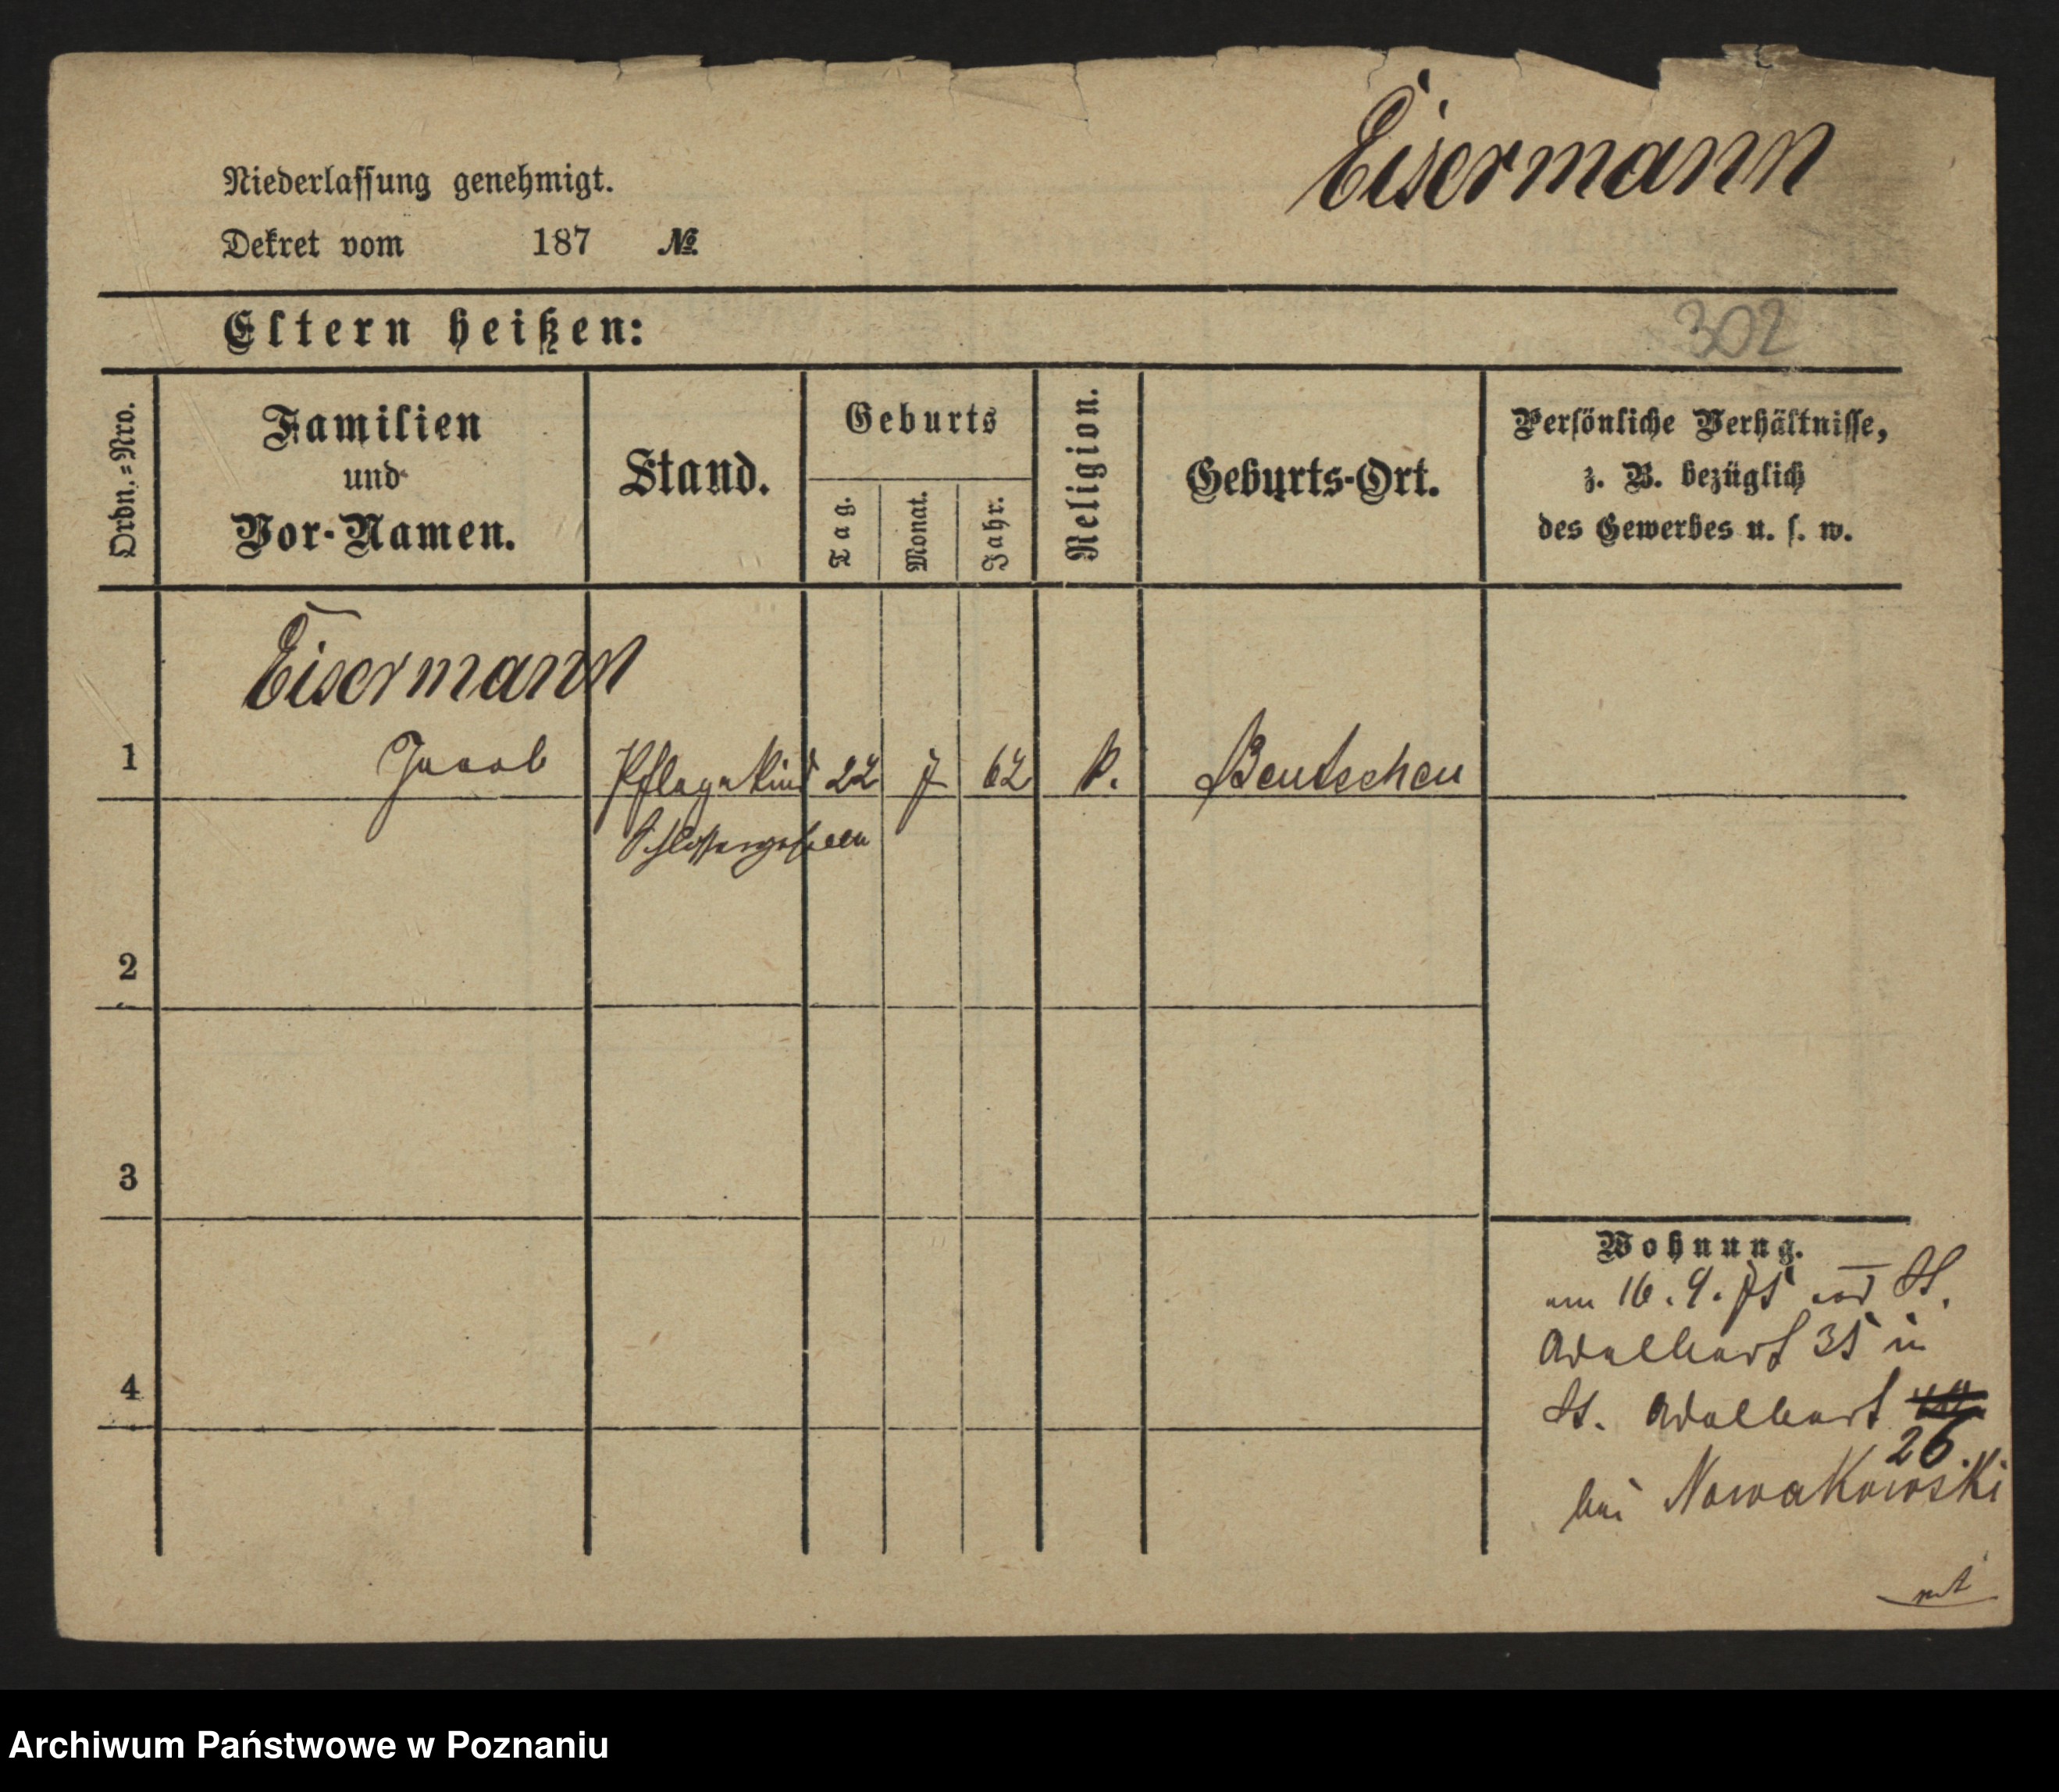 Eisermann
Niederlassung genehmigt.
Dekret vom 187 №
Eltern heißen:
302
Ordn.=Nro.
Familien
und
Vor-Namen.
Stand.
Geburts
Tag.
Monat.
Jahr.
Religion.
Geburts-Ort.
Persönliche Verhältnisse,
z. B. bezüglich
des Gewerbes u. s. w.
Eisermann
1 Jacob Pflegekind 22 7 62 k. Bentschen
Schlossergeselle
2
3
4
Wohnung.
am 16. 9. 75 St.
Adalbert 35 in
St. Adalbert
26.
bei Nowakowski